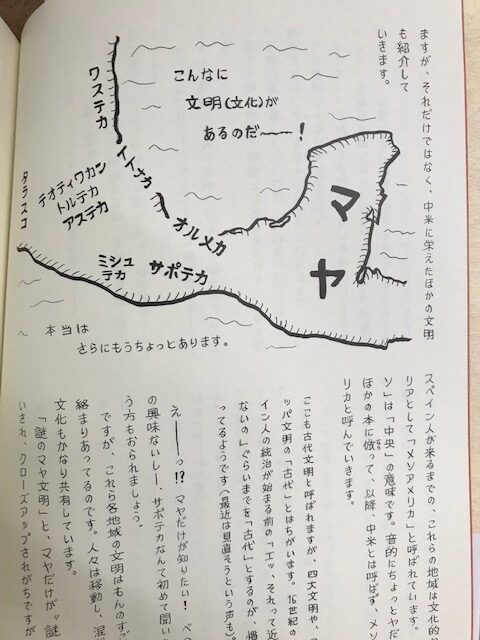 ますが、それだけではなく、中米に栄えたほかの文明
も紹介して
いきます。
こんなに
文明(文化)が
あるのだ～～～!
ワステカ
イサパ
オルメカ
マヤ
タラスコ
テオティワカン
トルテカ
アステカ
ミシュ
テカ
サポテカ
本当は
さらにもうちょっとあります。
スペイン人が来るまでの、これらの地域は文化的
リアとして「メソアメリカ」と呼ばれています。
ソ」は「中央」の意味です。音的にちょっとヤだ
ほかの本に倣って、以降、中米とは呼ばず、メ
リカと呼んでいきます。
ここも古代文明と呼ばれますが、四大文明や、
ッパ文明の「古代」とはちがいます。16世紀の
イン人の統治が始まる前の「エッ、それって近
ないの」ぐらいまでを「古代」とするのが、慣
ってるようです（最近は見直そうという声も）。
え――っ!? マヤだけが知りたい! べつ
の興味ないしー、サポテカなんて初めて聞い
う方もおられましょう。
ですが、これら各地域の文明はもんのすご
絡まりあってるのです。人々は移動し、混
文化もかなり共有しています。
「謎のマヤ文明」と、マヤだけが〝謎
いされ、クローズアップされがちですが